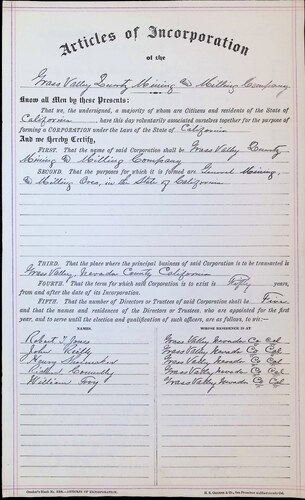 Articles of Incorporation
of the
Grass Valley Quartz Mining & Milling Company
Know all Men by these Presents:
That we, the undersigned, a majority of whom are Citizens and residents of the State of
California have this day voluntarily associated ourselves together for the purpose of
forming a CORPORATION under the Laws of the State of California
And we hereby Certify,
FIRST. That the name of said Corporation shall be Grass Valley Quartz
Mining & Milling Company
SECOND. That the purposes for which it is formed are General Mining,
& Milling Ores, in the State of California
THIRD. That the place where the principal business of said Corporation is to be transacted is
Grass Valley, Nevada County California
FOURTH. That the term for which said Corporation is to exist is Fifty years,
from and after the date of its Incorporation.
FIFTH. That the number of Directors or Trustees of said Corporation shall be Five
and that the names and residences of the Directors or Trustees, who are appointed for the first
year, and to serve until the election and qualification of such officers, are as follows, to wit:
NAMES: WHOSE RESIDENCE IS AT
Robert T. Jones Grass Valley Nevada Co Cal
John Reilly Grass Valley Nevada Co Cal
Henry Grass Valley Nevada Co Cal
Richard Connolly Grass Valley Nevada Co Cal
William Foy Grass Valley Nevada Co Cal
ARTICLES OF INCORPORATION.